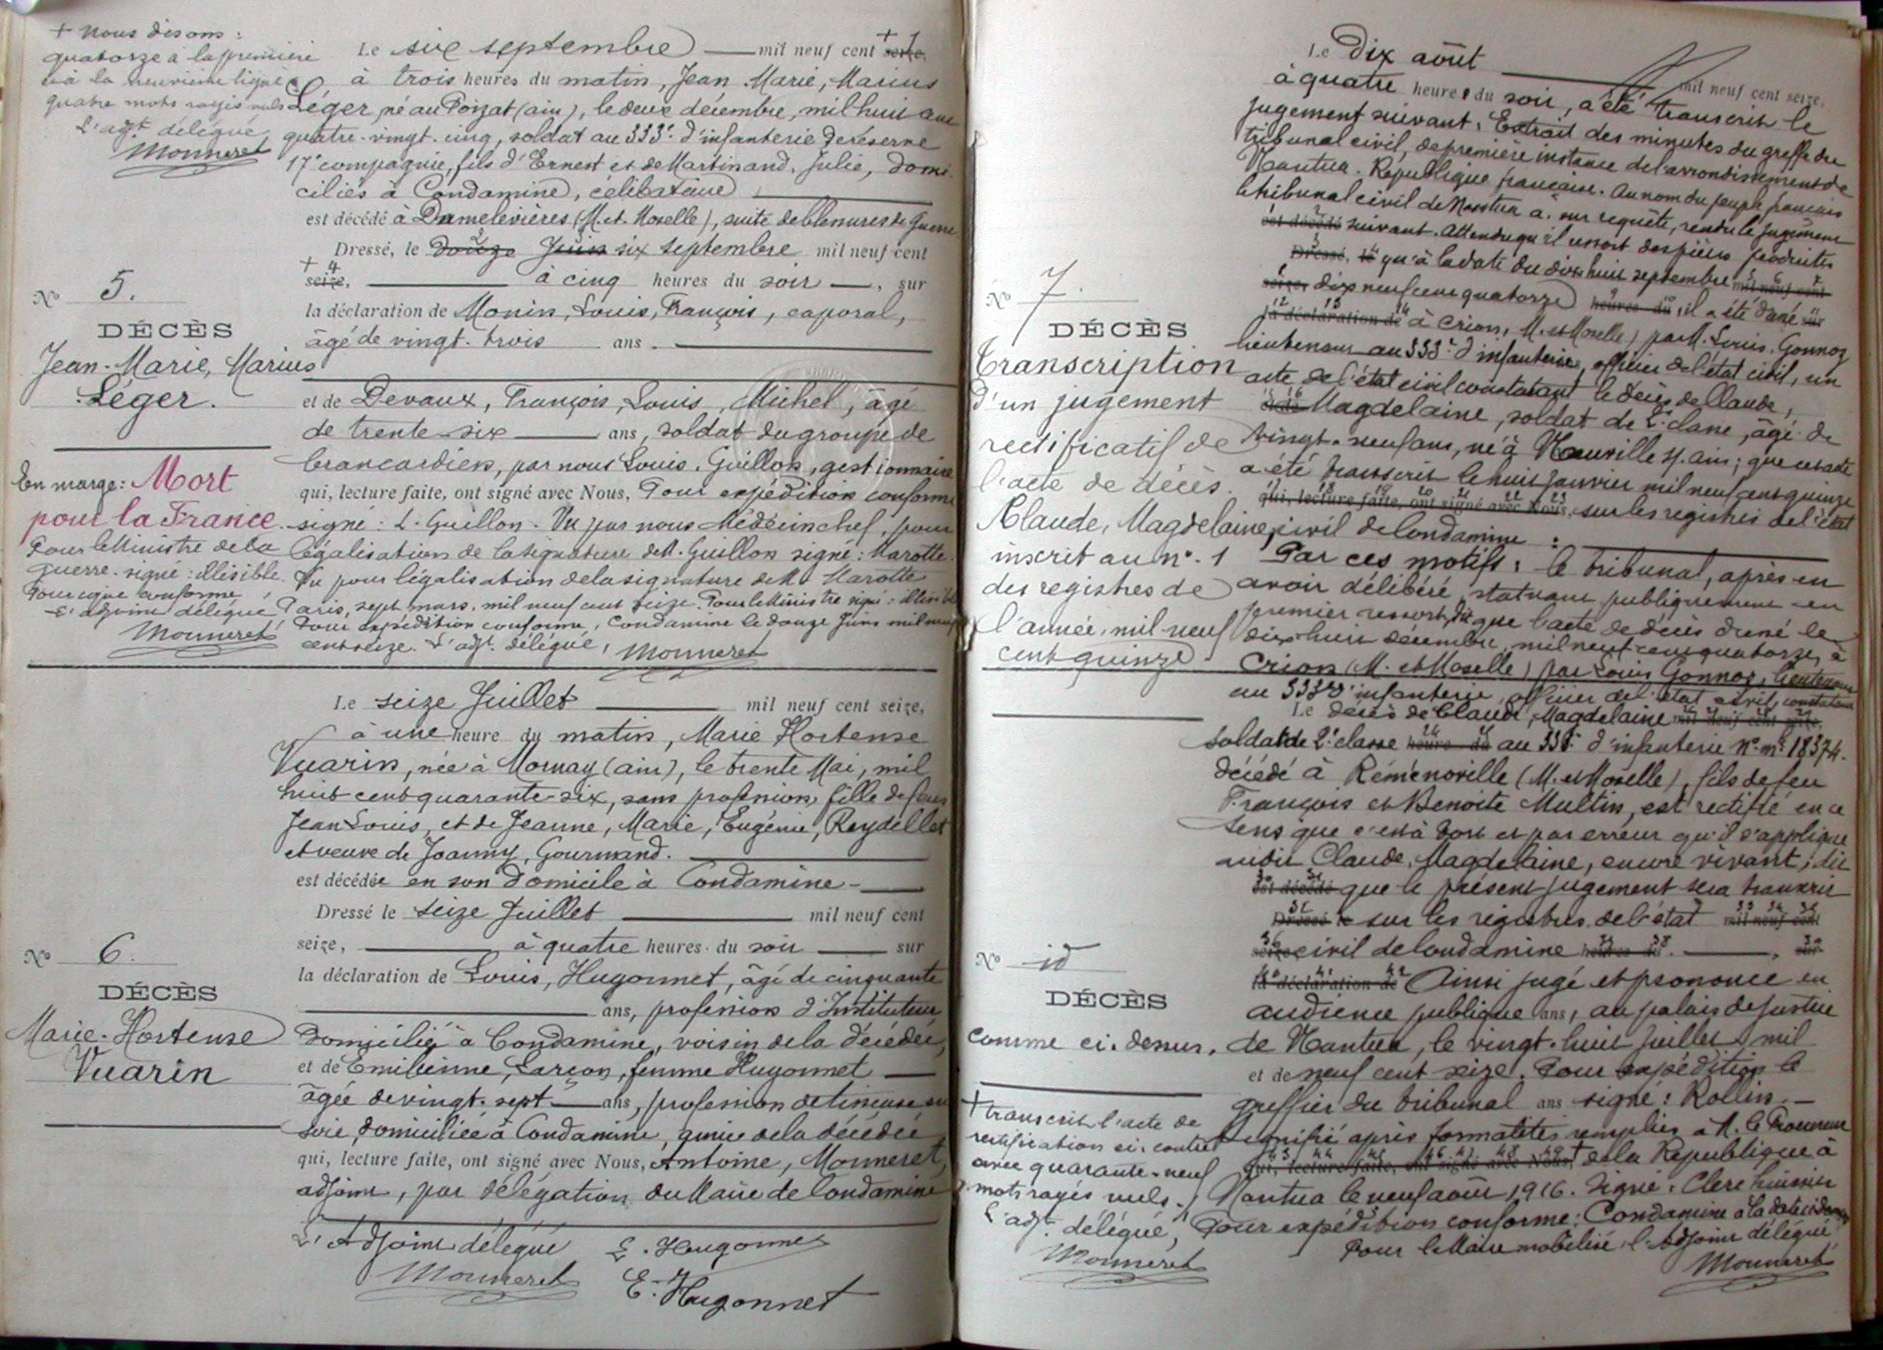 + Nous disons :
quatorze à la première
et à la neuvième ligne &
quatre mots rayés nuls
L'adjt délégué
Monneret
Le six septembre mil neuf cent seize,
à trois heures du matin, Jean, Marie, Marius
Léger, né au Poizat (ain), le deux décembre, mil huit cent
quatre-vingt-cinq, soldat au 333e d'infanterie de réserve
17e compagnie, fils d'Ernest et de Martinand, Julie, domi-
ciliés à Condamine, célibataire
est décédé à Damelevières (M. et Moselle), suite de blessures de guerre
Dressé, le douze Juin six septembre mil neuf cent
seize, à cinq heures du soir, sur
la déclaration de Monin, Louis, François, caporal,
âgé de vingt-trois ans.
et de Devaux, François, Louis, Michel, âgé
de trente-six ans, soldat du groupe de
brancardiers, par nous Louis, Guillon, gestionnaire
qui, lecture faite, ont signé avec Nous, Pour expédition conforme
signé : L. Guillon. Vu par nous Médecin chef, pour
légalisation de la signature de M. Guillon signé : Marotte.
Vu pour légalisation de la signature de M. Marotte
Paris, sept mars, mil neuf cent seize. Pour le Ministre signé : illisible
Pour expédition conforme, Condamine le douze Juin mil neuf
cent seize. L'adjt. délégué, Monneret
No 5.
DÉCÈS
Jean-Marie, Marius
Léger.
En marge : Mort
pour la France.
Pour le Ministre de la
guerre. signé : illisible.
Pour copie conforme
L'adjoint délégué
Monneret
Le seize Juillet mil neuf cent seize,
à une heure du matin, Marie Hortense
Vuarin, née à Mornay (ain), le trente Mai, mil
huit cent quarante-six, sans profession, fille de feus
Jean Louis, et de Jeanne, Marie, Eugénie, Reydellet
et veuve de Joanny, Gourmand.
est décédée en son domicile à Condamine
Dressé le seize Juillet mil neuf cent
seize, à quatre heures du soir sur
la déclaration de Louis, Hugonnet, âgé de cinquante
ans, profession d'Instituteur
domicilié à Condamine, voisin de la décédée,
et de Emilienne, Larçon, femme Hugonnet
âgée de vingt-sept ans, profession de tisseuse en
soie, domiciliée à Condamine, amie de la décédée
qui, lecture faite, ont signé avec Nous, Antoine, Monneret,
adjoint, par délégation du Maire de Condamine
L'Adjoint délégué L. Hugonnet
Monneret E. Hugonnet
No 6.
DÉCÈS
Marie-Hortense
Vuarin
Le Dix août mil neuf cent seize,
à quatre heures du soir, a été transcrit le
jugement suivant : Extrait des minutes du greffe du
tribunal civil, de première instance de l'arrondissement de
Nantua. République française. Au nom du peuple français
le tribunal civil de Nantua a, sur requête, rendu le jugement
est décédé suivant. Attendu qu'il ressort des pièces produites
Dressé, le qu'à la date du dix huit septembre mil neuf cent
seize, dix neuf cent quatorze heures du, il a été dressé sur
la déclaration de à Crion, M. et Moselle) par M. Louis, Gonnoz
lieutenant au 333e d'infanterie, officier de l'état civil, un
acte de l'état civil constatant le décès de Claude,
et de Magdelaine, soldat de 2e classe, âgé de
vingt-neuf ans, né à Neuville s. ain ; que cet acte
a été transcrit le huit janvier mil neuf cent quinze
qui, lecture faite, ont signé avec Nous, sur les registres de l'état
civil de Condamine :
Par ces motifs : le tribunal, après en
avoir délibéré, statuant publiquement en
premier ressort, dit que l'acte de décès dressé le
dix-huit décembre, mil neuf cent quatorze, à
Crion (M. et Moselle) par Louis Gonnoz, lieutenant
au 333e d'infanterie, officier de l'état civil, constatant
Le décès de Claude, Magdelaine mil neuf cent seize,
soldat de 2e classe heure du au 333e d'infanterie No. ml 18374.
décédé à Réménoville (M. et Moselle), fils de feu
François et Benoite Multin, est rectifié en ce
sens que c'est à tort et par erreur qu'il s'applique
audit Claude, Magdelaine, encore vivant ; dit
est décédé que le présent jugement sera transcrit
Dressé le sur les registres de l'état mil neuf cent
seize civil de Condamine heures du. sur
la déclaration de Ainsi jugé et prononcé en
audience publique ans, au palais de justice
de Nantua, le vingt-huit juillet mil
et de neuf cent seize. Pour expédition le
greffier du tribunal ans signé : Rollin.
Signifié après formalités remplies à M. le Procureur
qui, lecture faite, ont signé avec Nous, de la République à
Nantua le neuf août 1916. Signé : Clerc huissier
Pour expédition conforme : Condamine à la date ci-dessus
Pour le Maire mobilisé, l'Adjoint délégué,
Monneret
No 7.
DÉCÈS
Transcription
d'un jugement
rectificatif de
l'acte de décès.
Claude, Magdelaine,
inscrit au no. 1
des registres de
l'année, mil-neuf
cent-quinze
No id
DÉCÈS
Comme ci-dessus.
+ transcrit l'acte de
rectification ci-contre
avec quarante-neuf
mots rayés nuls.
L'adjt. délégué,
Monneret